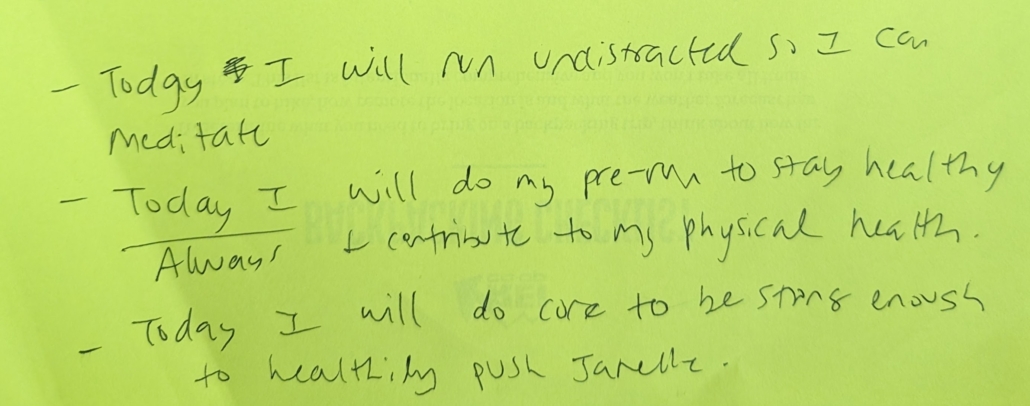 - Today I will run undistracted so I can
meditate
- Today I will do my pre-run to stay healthy
Always & contribute to my physical health.
- Today I will do core to be strong enough
to healthily push Janelle.